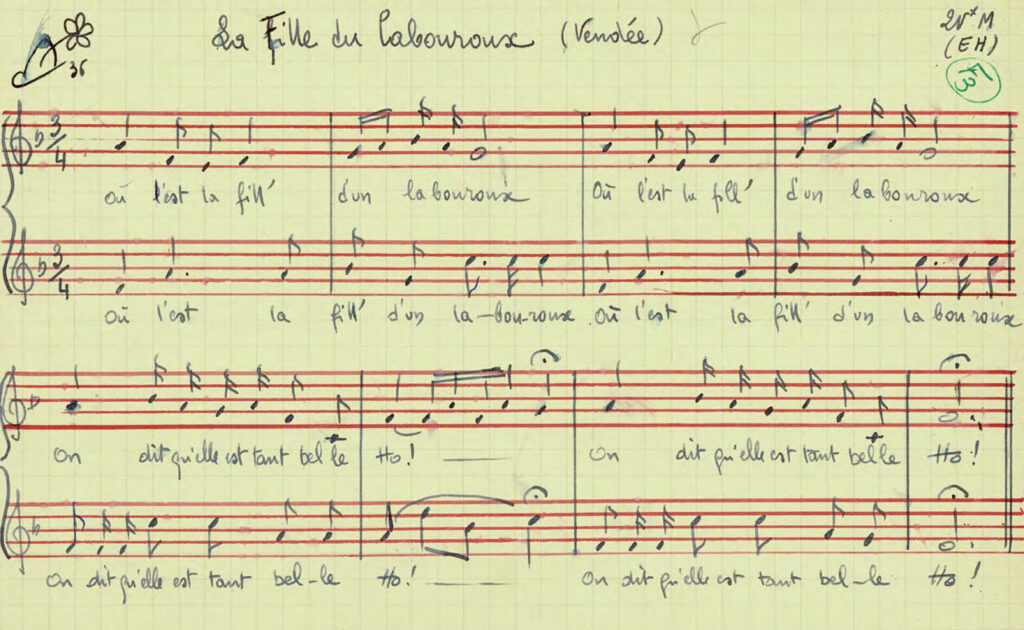 La Fille du Labouroux (Vendée)
2 Vx M
(EH)
36
13
3/4
Où l'est la fill' d'un labouroux Où l'est la fill' d'un labouroux
3/4
Où l'est la fill' d'un la-bou-roux Où l'est la fill' d'un labouroux
On dit qu'elle est tant bel le Ho! On dit qu'elle est tant bel le Ho!
On dit qu'elle est tant bel-le Ho! On dit qu'elle est tant bel-le Ho!